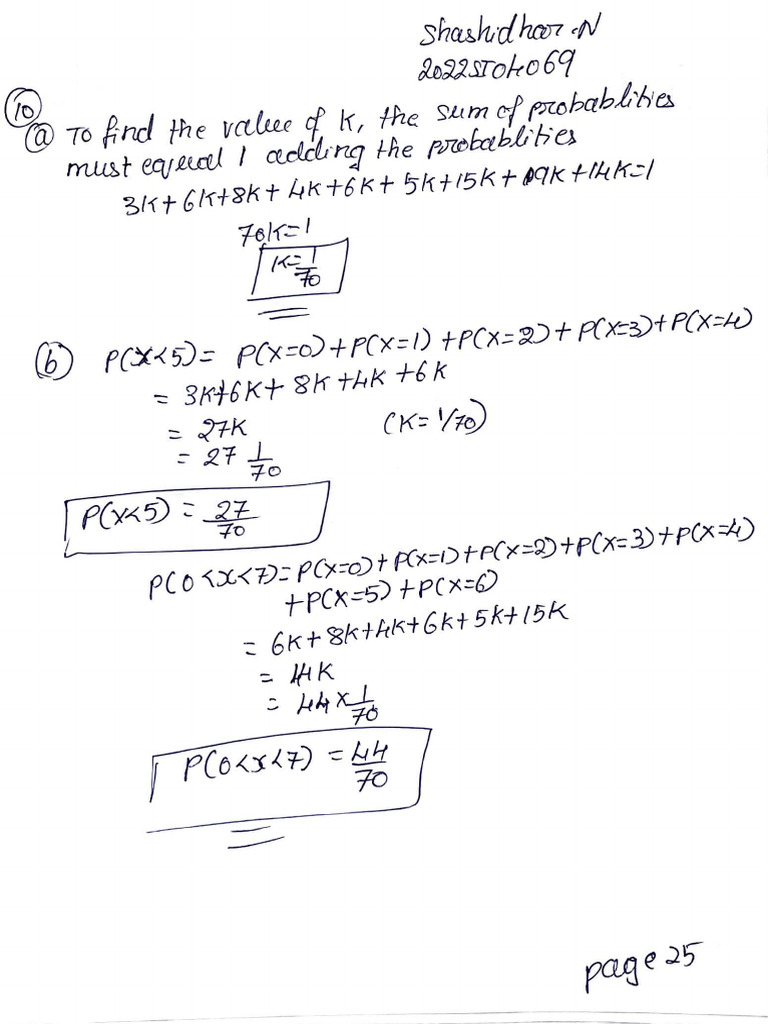 Shashidhar.N
2022ST04069
10
(a) To find the value of K, the sum of probablities
must equal 1 adding the probablities
3K+6K+8K+4K+6K+5K+15K+9K+14K=1
70K=1
K=1/70
(b) P(X<5) = P(X=0)+P(X=1)+P(X=2)+P(X=3)+P(X=4)
= 3K+6K+8K+4K+6K
= 27K (K=1/70)
= 27 1/70
P(X<5) = 27/70
P(0<x<7)=P(X=0)+P(X=1)+P(X=2)+P(X=3)+P(X=4)
+P(X=5)+P(X=6)
= 6K+8K+4K+6K+5K+15K
= 44K
= 44×1/70
P(0<x<7) = 44/70
page 25